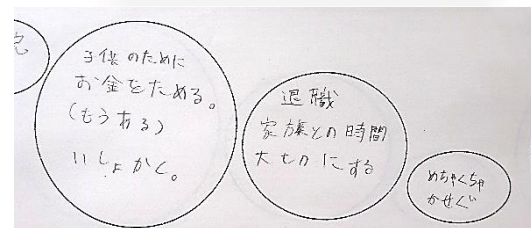 子供のために
お金をためる。
(もうある)
いしょかく。
退職
家族との時間
大切にする
めちゃくちゃ
かせぐ